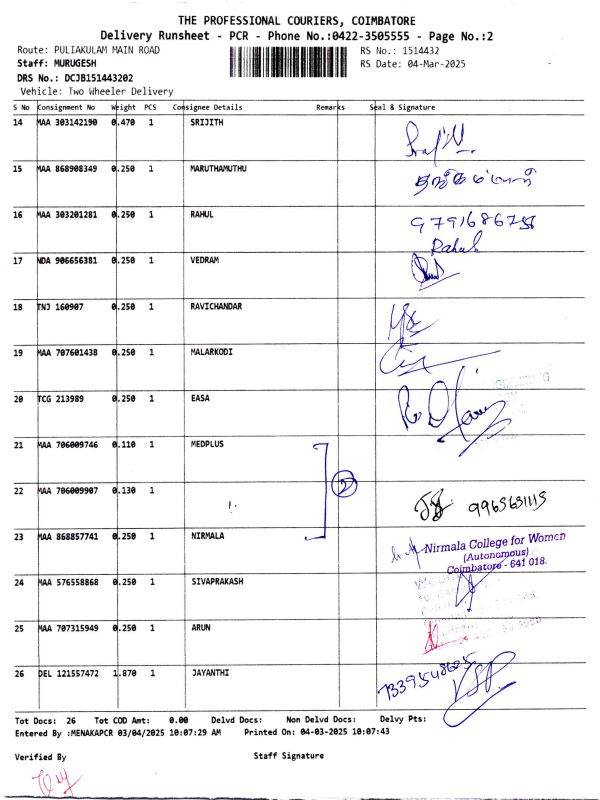 THE PROFESSIONAL COURIERS, COIMBATORE
Delivery Runsheet - PCR - Phone No.:0422-3505555 - Page No.:2
Route: PULIAKULAM MAIN ROAD RS No.: 1514432
Staff: MURUGESH RS Date: 04-Mar-2025
DRS No.: DCJB151443202
Vehicle: Two Wheeler Delivery
S No Consignment No Weight PCS Consignee Details Remarks Seal & Signature
14 MAA 303142190 0.470 1 SRIJITH
15 MAA 868908349 0.250 1 MARUTHAMUTHU
16 MAA 303201281 0.250 1 RAHUL
Rahul
17 NDA 906656381 0.250 1 VEDRAM
18 TNJ 160907 0.250 1 RAVICHANDAR
19 MAA 707601438 0.250 1 MALARKODI
20 TCG 213989 0.250 1 EASA
21 MAA 706009746 0.110 1 MEDPLUS
2
22 MAA 706009907 0.130 1
9965651115
23 MAA 868857741 0.250 1 NIRMALA
Nirmala College for Women
(Autonomous)
Coimbatore - 641 018.
24 MAA 576558868 0.250 1 SIVAPRAKASH
25 MAA 707315949 0.250 1 ARUN
26 DEL 121557472 1.870 1 JAYANTHI
Tot Docs: 26 Tot COD Amt: 0.00 Delvd Docs: Non Delvd Docs: Delvy Pts:
Entered By :MENAKAPCR 03/04/2025 10:07:29 AM Printed On: 04-03-2025 10:07:43
Verified By Staff Signature